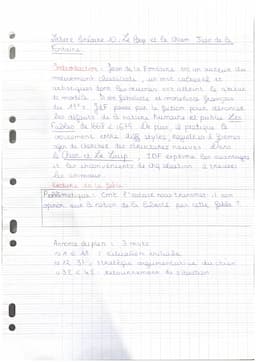 Lecture linéaire 10 : Le Loup et le Chien Jean de la
Fontaine
Introduction : Jean de la Fontaine est un auteur du
mouvement classicisme, un art
artistiques dont les œuvres ont atteint le statut
de modèle. Il est fabuliste et moraliste français
du 17e s. JDF passe par la fiction pour dénoncer
les défauts de la nature humaine et publie Les
Fables de 1668 à 1694. De plus, il pratique le
croisement entre les styles, registres et formes
afin de créer des structures neuves. Dans
le Chien et Le Loup, JDF exprime les avantages
et les inconvénients de situation à travers
les animaux.
Lecture de la fable
Problématique : Cmt l'auteur nous transmet-il son
opinion sur la notion de la liberté par cette fable ?
Annonce du plan : 3 mvts
1 à : situation initiale
12 31 : stratégie argumentative du chien
32 à 41 : retournement de situation